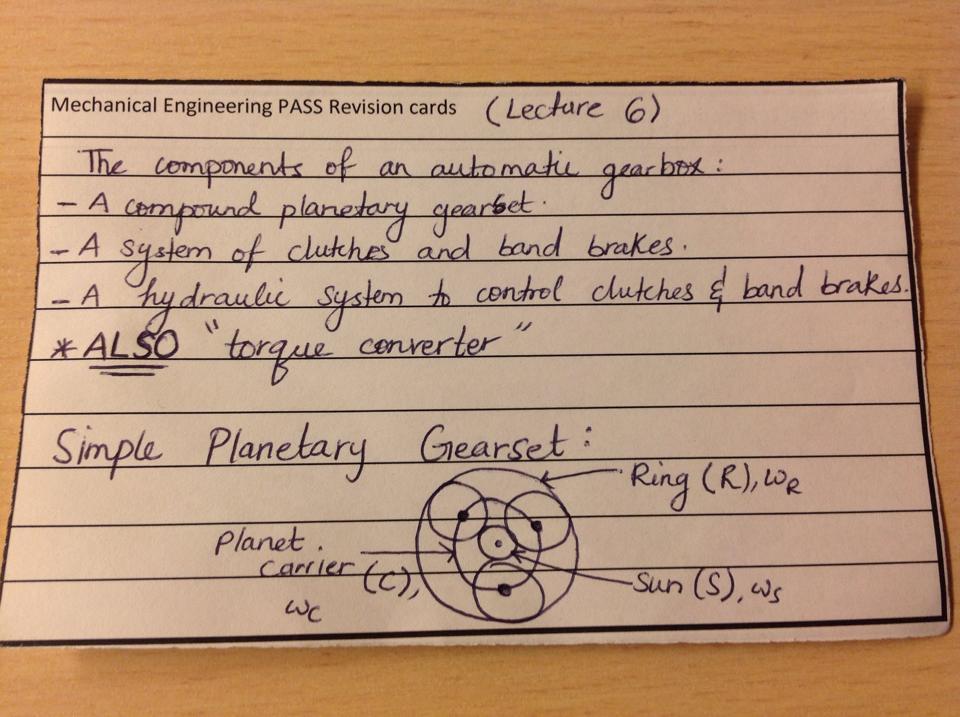 Mechanical Engineering PASS Revision cards (Lecture 6)
The components of an automatic gearbox:
- A compound planetary gearset.
- A system of clutches and band brakes.
- A hydraulic system to control clutches & band brakes.
* ALSO "torque converter"
Simple Planetary Gearset:
Ring (R), ωR
Planet
carrier (C),
ωC
Sun (S), ωS